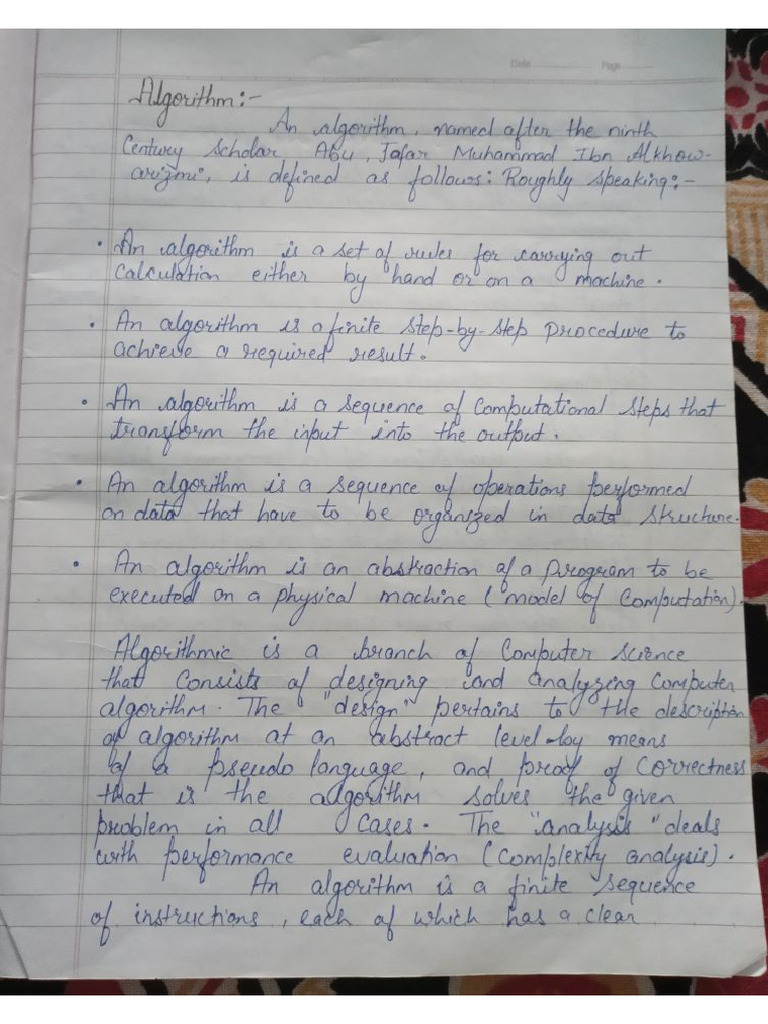 Date Page
Algorithm:-
An algorithm, named after the ninth
Centurey Scholar Abu, Jafar Muhammad Ibn Alkhow-
arizmi", is defined as follows: Roughly speaking:-
• An algorithm is a set of rules for carrying out
calculation either by hand or on a machine.
• An algorithm is a finite step-by-step procedure to
achieve a required result.
• An algorithm is a sequence of computational steps that
transform the input into the output.
• An algorithm is a sequence of operations performed
on data that have to be organized in data structure.
• An algorithm is an abstraction of a program to be
executed on a physical machine (model of Computation).
Algorithmic is a branch of Computer science
that consists of designing and analyzing computer
algorithm. The "design" pertains to the description
of algorithm at an abstract level by means
of a pseudo language, and proof of correctness
that is the algorithm solves the given
problem in all cases. The "analysis" deals
with performance evaluation (complexity analysis).
An algorithm is a finite sequence
of instructions, each of which has a clear